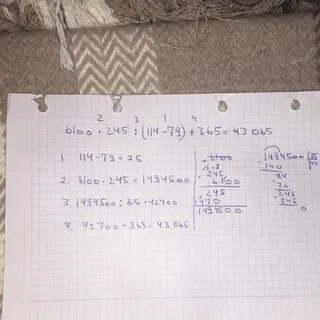 2 3 1 4
6100 · 245 : (114 - 79) + 365 = 43 065
1. 114 - 79 = 35
2. 6100 · 245 = 1494500
3. 1494500 : 35 = 42700
4. 42700 + 365 = 43 065
6100
245
6100
245
1470
1494500
1494500 35
140
94
70
245
245
0